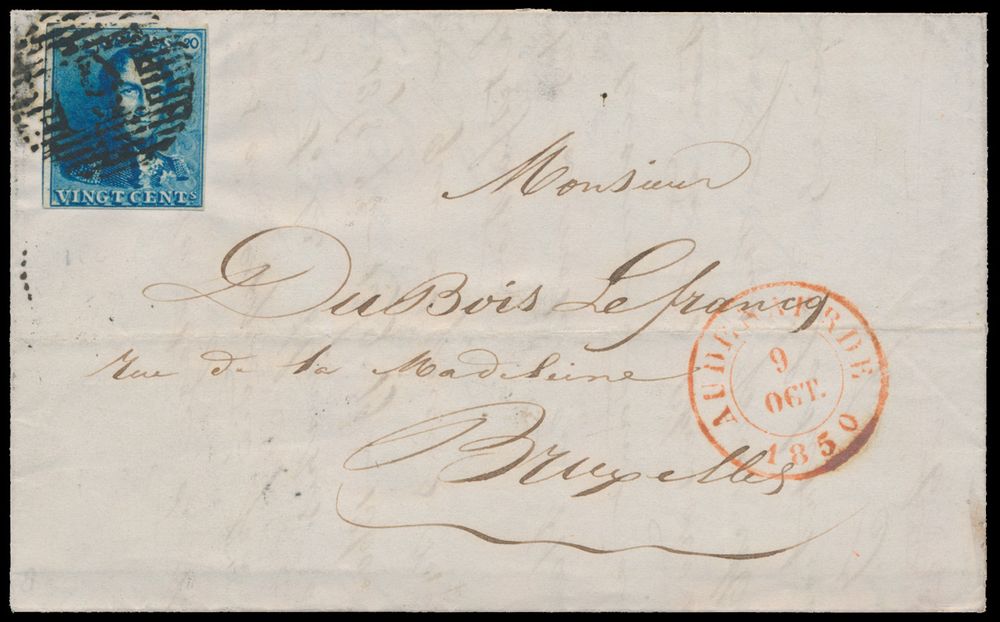 20
VINGT CENTS
Monsieur
DuBois Lefrancq
rue de la Madeleine
Bruxelles
AUDENAERDE
9
OCT.
1850